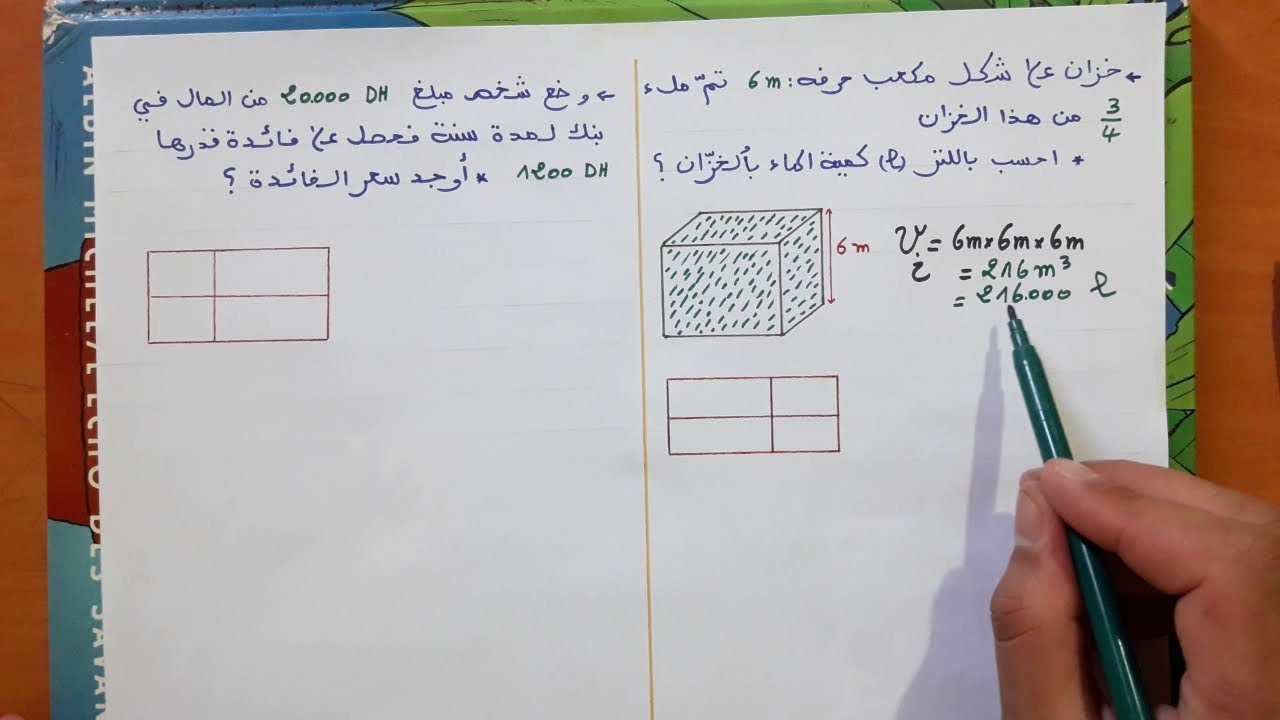 ← خزان على شكل مكعب حرفه: 6 m تمّ ملء
3/4 من هذا الخزان
* احسب باللتر (l) كمية الماء بالخزّان ؟
6 m
V = 6m×6m×6m
= 216 m³
= 216.000 l
← وضع شخص مبلغ 20.000 DH من المال في
بنك لمدة سنة فحصل على فائدة قدرها
1200 DH * أوجد سعر الفائدة ؟
ALBIN MICHEL / L'ECHO DES SAVAN